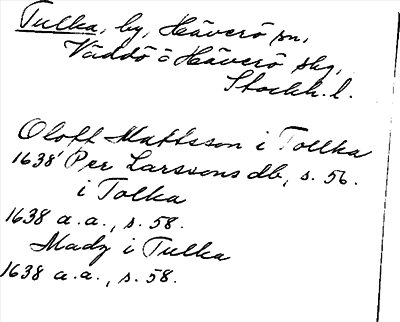 Tulka, by, Häverö sn,
Väddö o Häverö skg,
Stockh. l.
Oloff Mattsson i Tollka
1638 Per Larssons db, s. 56.
i Tolka
1638 a.a., s. 58.
Madz i Tulka
1638 a.a., s. 58.